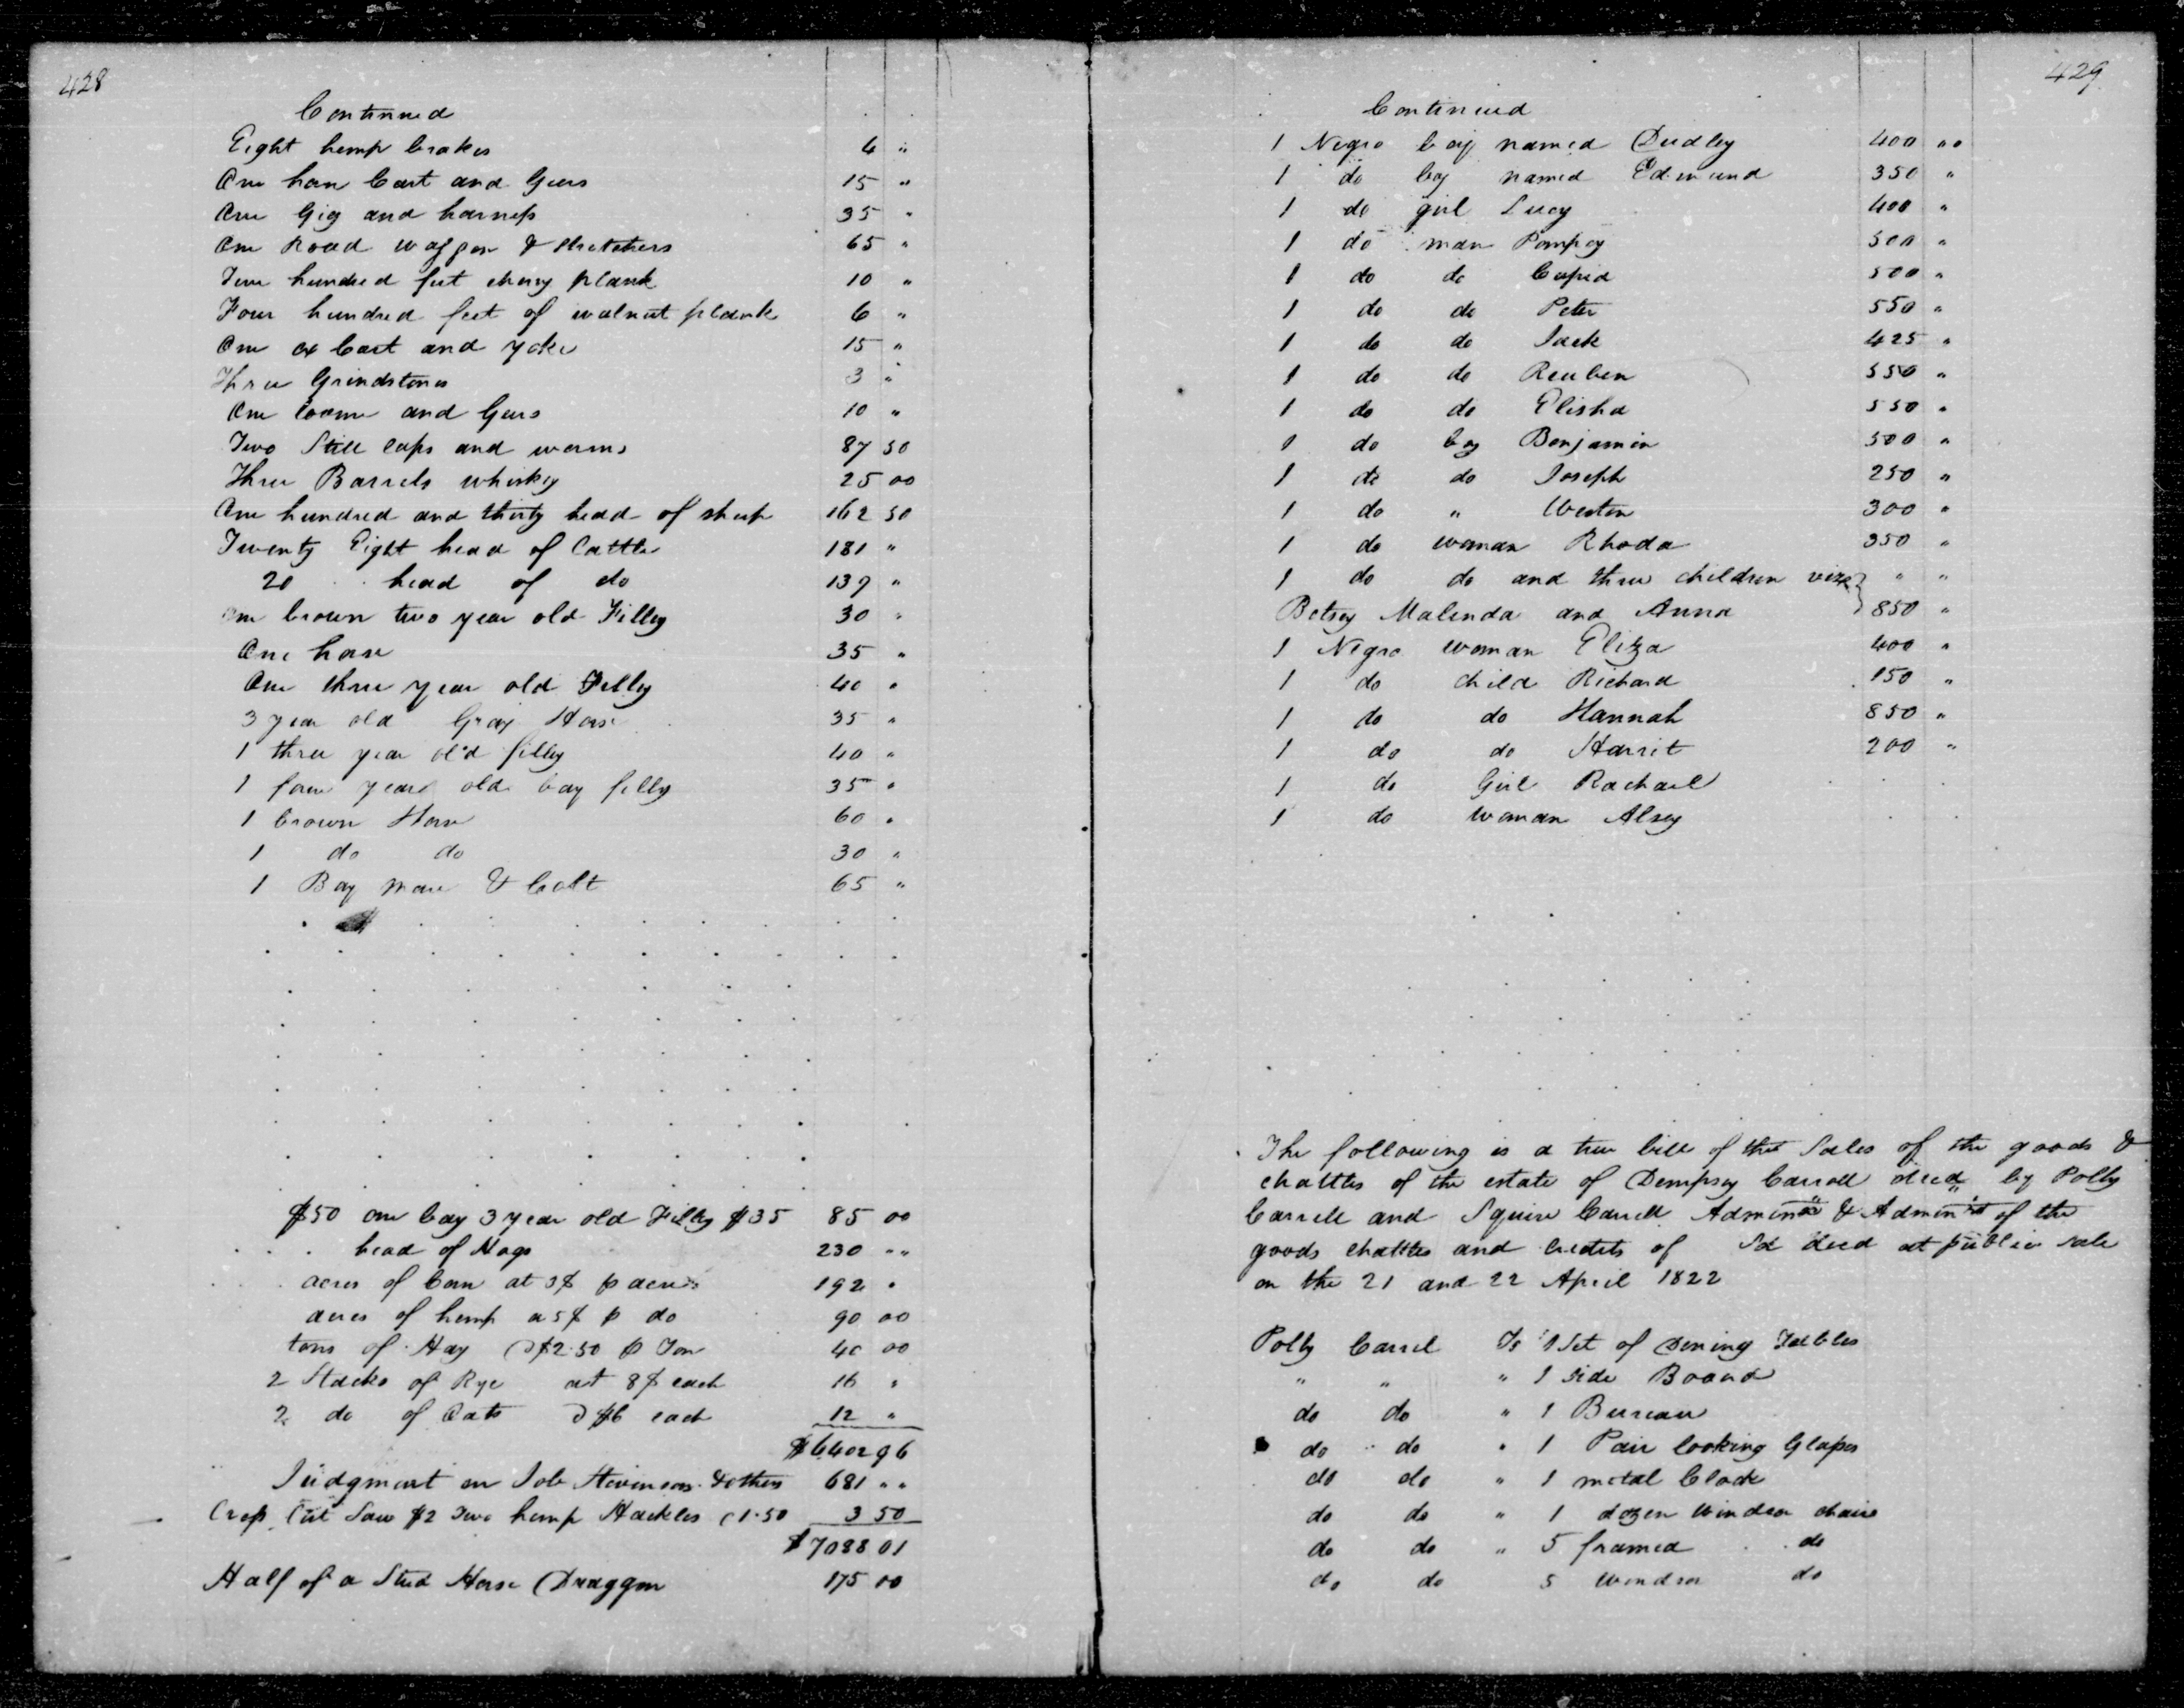 428
Continued
Eight hemp brakes 4 "
One horse Cart and Gears 15 "
One Gig and harness 35 "
One Road waggon & stretchers 65 "
Two hundred feet cherry plank 10 "
Four hundred feet of walnut plank 6 "
One ox Cart and yoke 15 "
Three Grindstones 3 "
One loome and Gears 10 "
Two Still caps and worms 87 50
Three Barrels whiskey 25 00
One hundred and thirty head of sheep 162 50
Twenty Eight head of Cattle 181 "
20 head of do 139 "
one brown two year old Filley 30 "
One horse 35 "
One three year old Filley 40 "
3 year old Gray Horse 35 "
1 three year old filley 40 "
1 four year old bay filley 35 "
1 brown Horse 60 "
1 do do 30 "
1 Bay mare & Colt 65 "
$50 one bay 3 year old Filley $35 85 00
head of Hogs 230 " "
acres of Corn at 3$ p acre 192 "
acres of hemp a 5$ p do 90 00
tons of Hay @ $2.50 p Ton 40 00
2 Stacks of Rye at 8$ each 16 "
2 do of Oats @ $6 each 12 "
$6402 96
Judgment on Job Stevenson & others 681 " "
Crop Cut Saw $2 Two hemp Hackles 1.50 3 50
$7088 01
Half of a Stud Horse Draggon 175 00
429
Continued
1 Negro boy named Dudley 400 " "
1 do boy named Edmund 350 "
1 do girl Lucy 400 "
1 do man Pompey 500 "
1 do do Cupid 500 "
1 do do Peter 550 "
1 do do Jack 425 "
1 do do Reuben 550 "
1 do do Elisha 550 "
1 do boy Benjamin 500 "
1 do do Joseph 250 "
1 do " Weston 300 "
1 do woman Rhoda 350 "
1 do do and three children viz } " "
Betsey Malinda and Anna } 850 "
1 Negro woman Eliza 400 "
1 do child Richard 150 "
1 do do Hannah 850 "
1 do do Harrit 200 "
1 do Girl Rachael
1 do woman Alsey
The following is a true bill of the Sales of the goods &
chattles of the estate of Dempsey Carroll decd by Polly
Carrell and Squire Carrell & of the
goods chattles and credits of Sd decd at public sale
on the 21 and 22 April 1822
Polly Carrel To 1 Set of Dining Tables
" " " 1 side Board
do do " 1 Bureau
do do " 1 Pair looking Glases
do do " 1 metal Clock
do do " 1 dozen Windsor chairs
do do " 5 framed do
do do 5 Windsor do